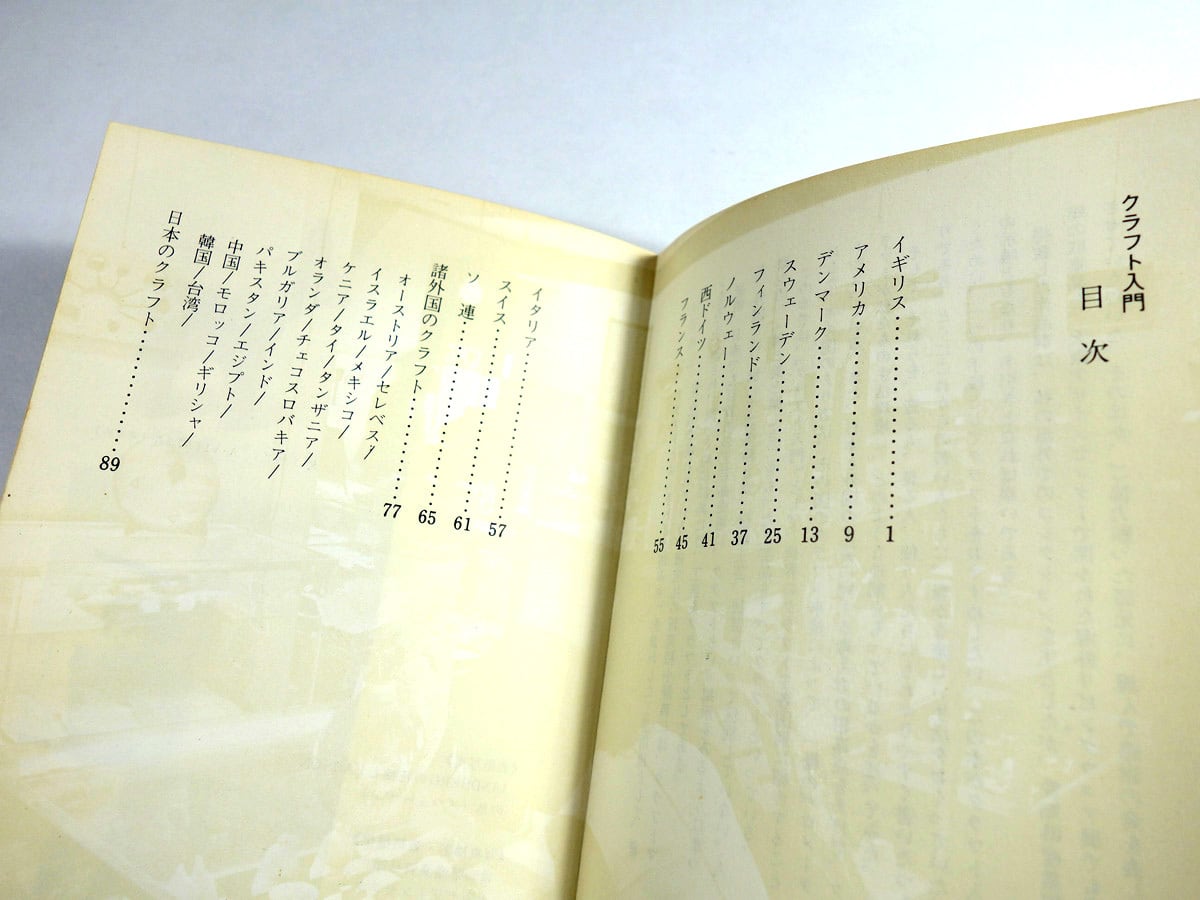 クラフト入門
目次
イギリス……………………1
アメリカ……………………9
デンマーク…………………13
スウェーデン………………25
フィンランド………………37
ノルウェー…………………41
西ドイツ……………………45
フランス……………………55
イタリア……………………57
スイス………………………61
ソ 連………………………65
諸外国のクラフト…………77
オーストリア/セレベス/
イスラエル/メキシコ/
ケニア/タイ/タンザニア/
オランダ/チェコスロバキア/
ブルガリア/インド/
パキスタン/エジプト/
中国/モロッコ/ギリシャ/
韓国/台湾/
日本のクラフト……………89